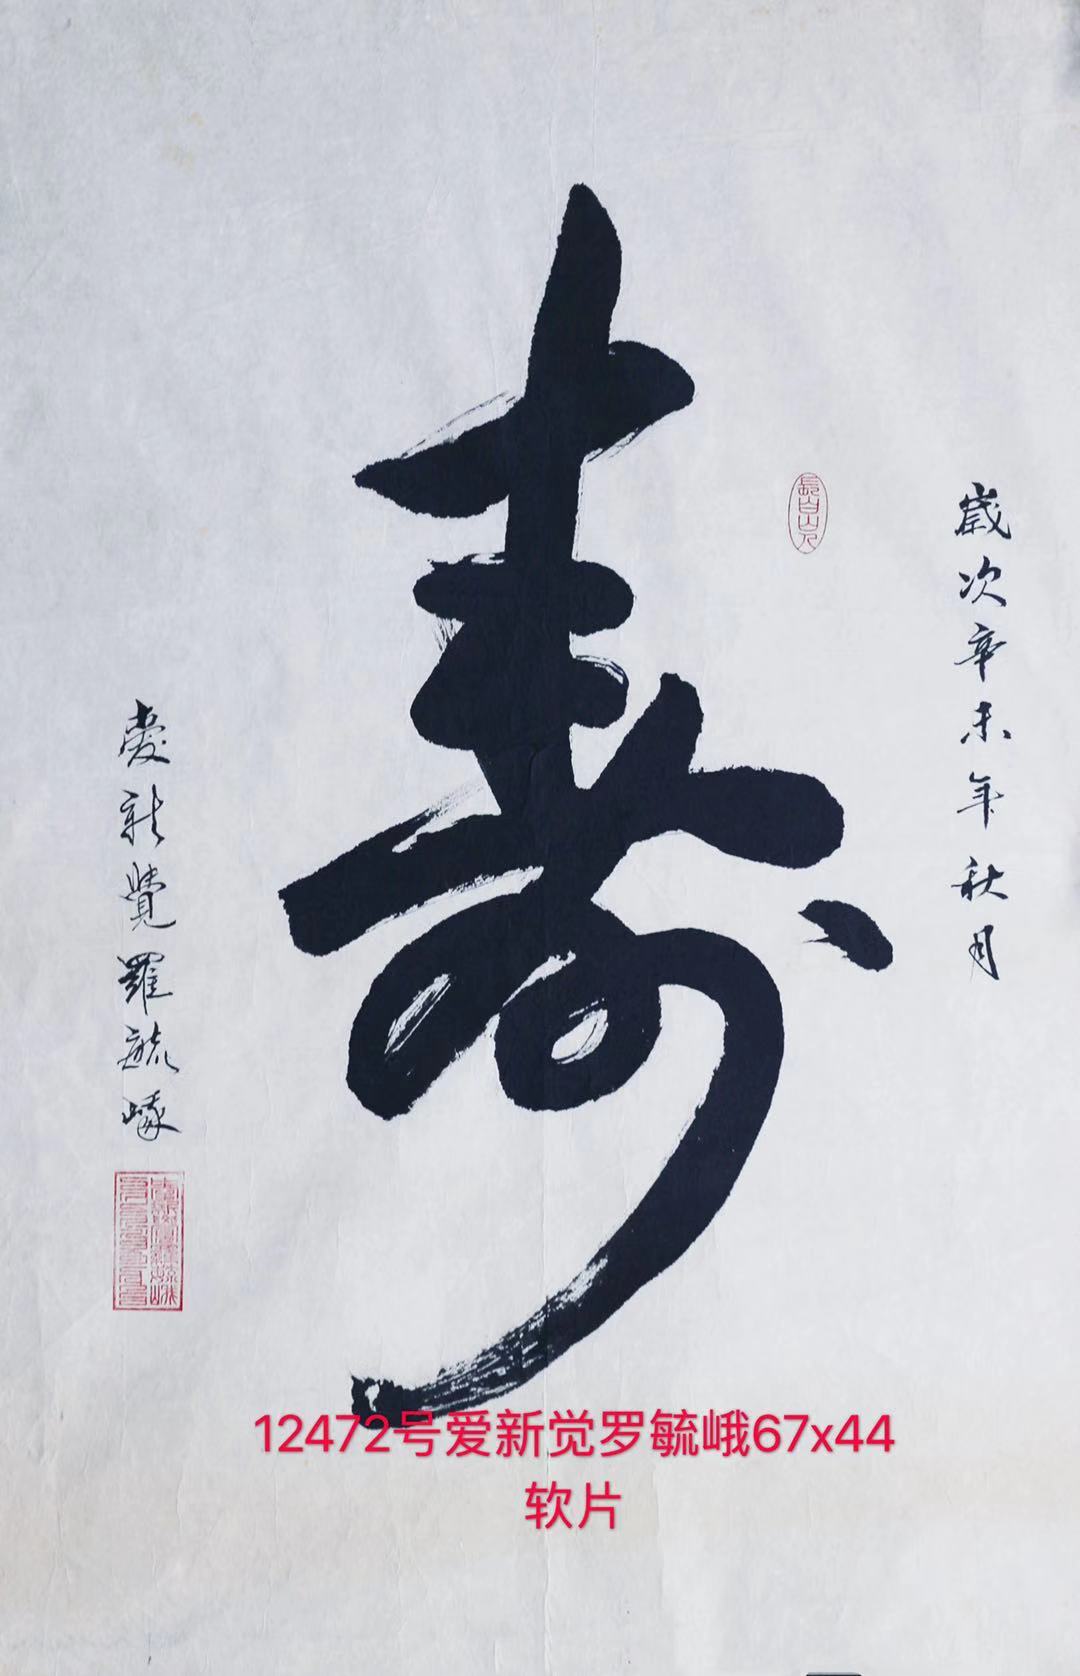 歲次辛未年秋月
長白山人
壽
愛新覺羅毓峨
12472号爱新觉罗毓峨67x44
软片